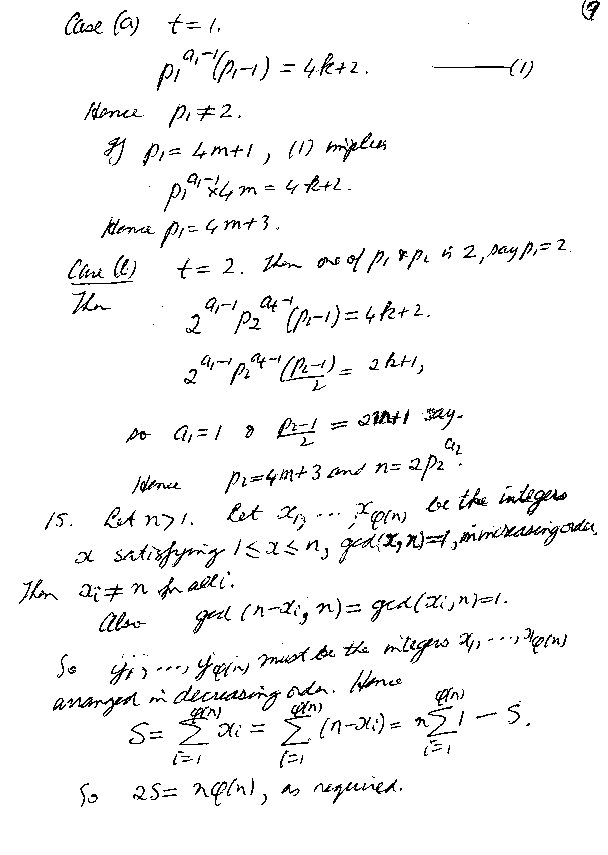 9
Case (a) t = 1.
p₁^{a₁-1}(p₁-1) = 4k+2. ——— (1)
Hence p₁ ≠ 2.
If p₁ = 4m+1, (1) implies
p₁^{a₁-1} × 4m = 4k+2.
Hence p₁ = 4m+3.
Case (b) t = 2. Then one of p₁ & p₂ is 2, say p₁ = 2.
Then
2^{a₁-1} p₂^{a_t-1} (p₂-1) = 4k+2.
2^{a₁-1} p₂^{a_t-1} (p₂-1)/2 = 2k+1,
so a₁ = 1 & (p₂-1)/2 = 2m+1 say.
Hence p₂ = 4m+3 and n = 2p₂^{a₂}.
15. Let n > 1. Let x₁, ..., x_{φ(n)} be the integers
x satisfying 1 ≤ x ≤ n, gcd(x, n) = 1, in increasing order.
Then xᵢ ≠ n for all i.
Also gcd (n-xᵢ, n) = gcd(xᵢ, n) = 1.
So y₁, ..., y_{φ(n)} must be the integers x₁, ..., x_{φ(n)}
arranged in decreasing order. Hence
S = ∑_{i=1}^{φ(n)} xᵢ = ∑_{i=1}^{φ(n)} (n-xᵢ) = n ∑_{i=1}^{φ(n)} 1 - S.
So 2S = nφ(n), as required.